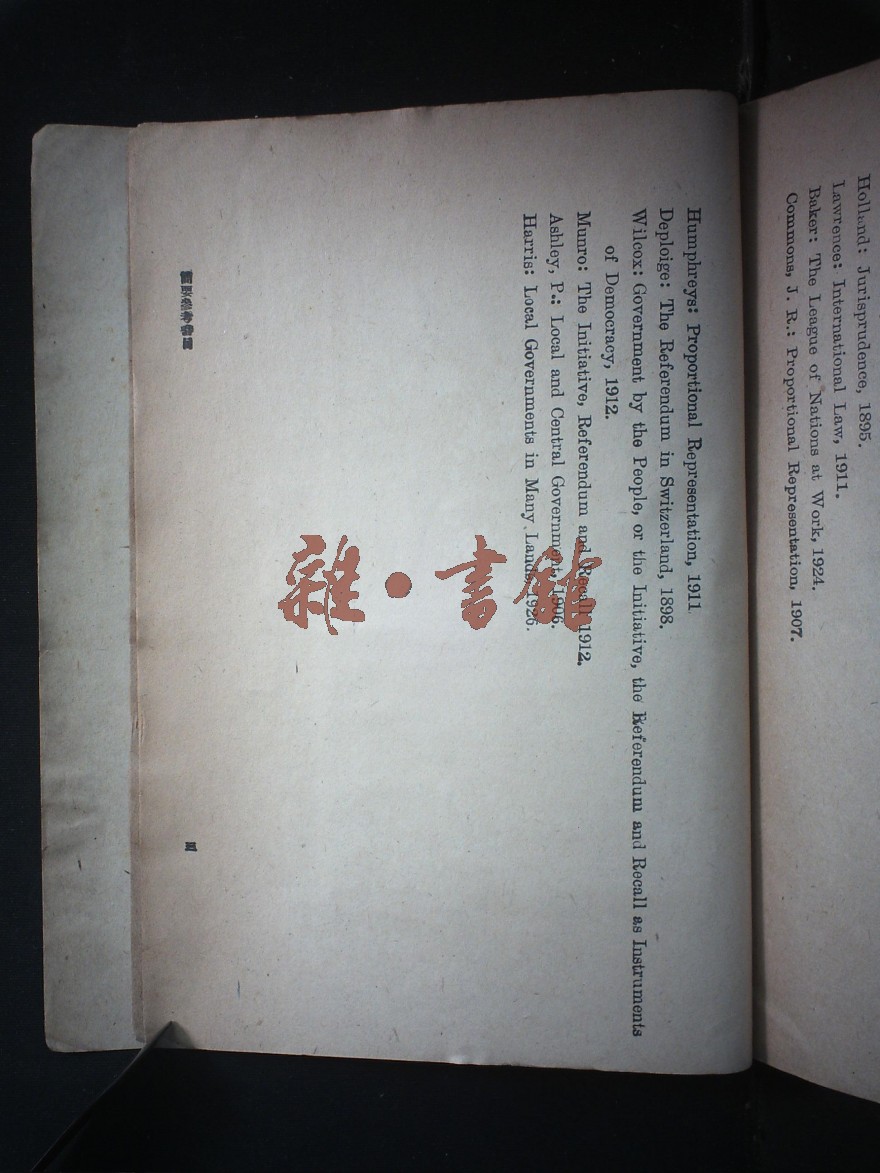 Holland: Jurisprudence, 1895.
Lawrence: International Law, 1911.
Baker: The League of Nations at Work, 1924.
Commons, J. R.: Proportional Representation, 1907.
Humphreys: Proportional Representation, 1911
Deploige: The Referendum in Switzerland, 1898.
Wilcox: Government by the People, or the Initiative, the Referendum and Recall as Instruments
of Democracy, 1912.
Munro: The Initiative, Referendum and Recall, 1912.
Ashley, P.: Local and Central Government, 1906.
Harris: Local Governments in Many Lands, 1926.
雜·書館